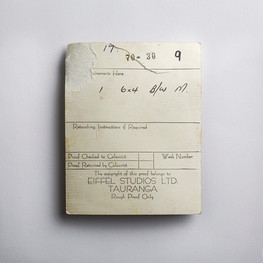 19
70 - 30 9
1 6x4 B/W M.
Retouching Instructions if Required
Proof Checked to Colourist
Week Number
Proof Returned by Colourist
The copyright of this proof belongs to
EIFFEL STUDIOS LTD.
TAURANGA
Rough Proof Only